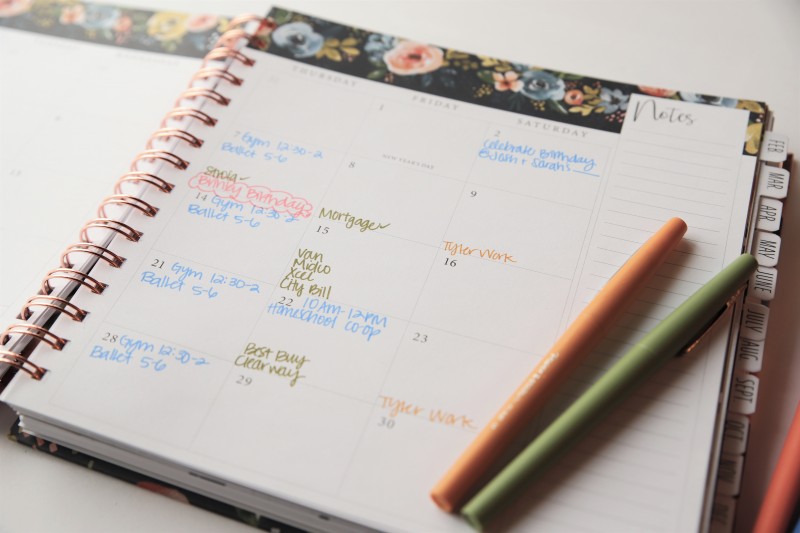 THURSDAY
FRIDAY
SATURDAY
Notes
1
2
Celebrate Birthday
7 Gym 12:30-2
Ballet 5-6
8
9
Birthday
14 Gym 12:30-2
Ballet 5-6
Mortgage
15
Tyler Work
16
21 Gym 12:30-2
Ballet 5-6
Van
Xcel
City Bill
22 10AM-12PM
Homeschool CO-OP
23
28 Gym 12:30-2
Ballet 5-6
Best Buy
Clearway
29
Tyler Work
30
FEB
MAR
APR
MAY
JUNE
JULY
AUG
SEPT
OCT
NOV